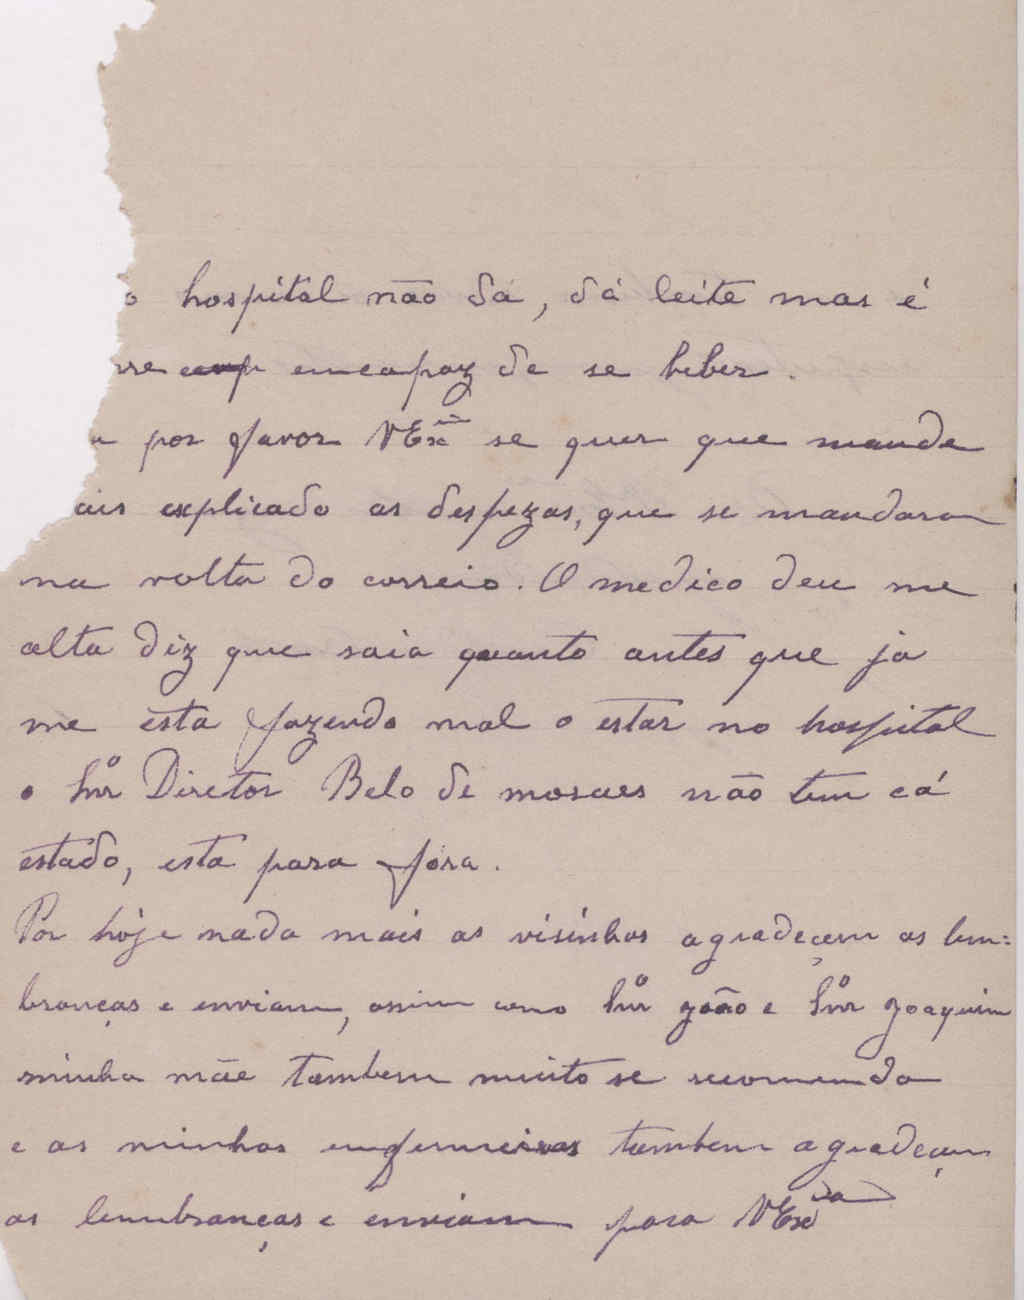 o hospital não dá, dá leite mas é
encapaz de se beber.
por favor VExª se quer que mande
ais explicado as despezas, que se mandaram
na volta do correio. O medico deu me
alta diz que saia quanto antes que ja
me esta fazendo mal o estar no hospital
o Snrº Diretor Belo de moraes não tem cá
estado, esta para fóra.
Por hoje nada mais as visinhas agradeçem as lem=
branças e enviam, assim como Snrº João e Snrº Joaquim
minha mãe tambem muito se recomenda
e as minhas enfermeiras tambem agradeçem
as lembranças e enviam para VExcia